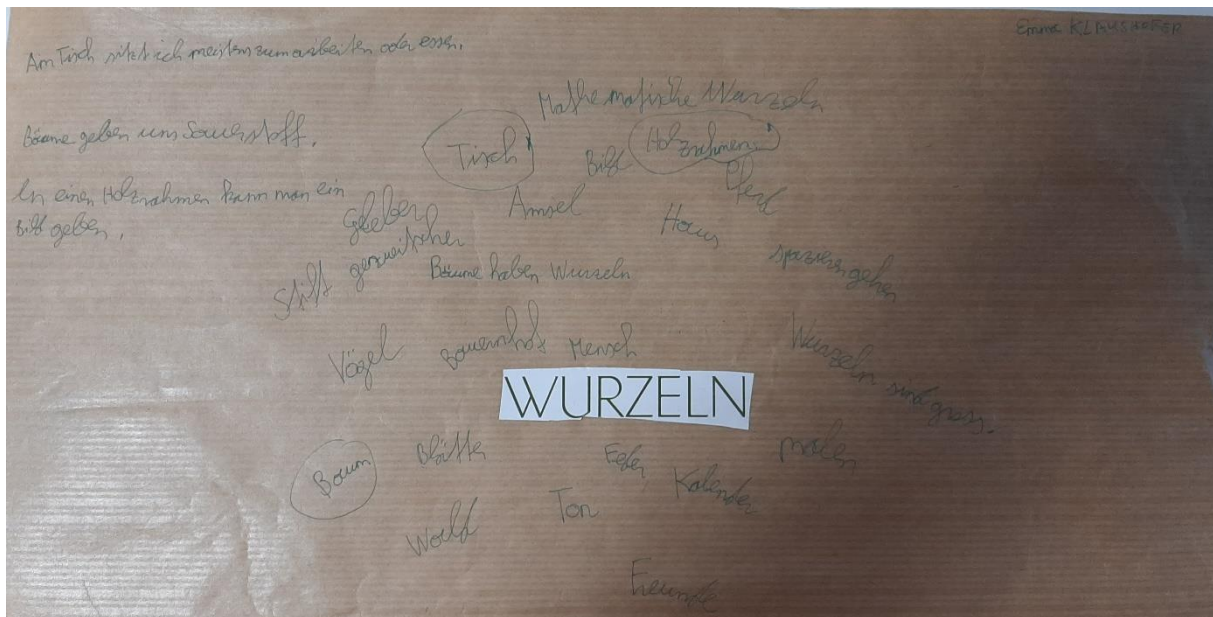 Emma KLAUSHOFER
Am Tisch sitzt ich meistens zum arbeiten oder essen.
Bäume geben uns Sauerstoff.
In einen Holzrahmen kann man ein
Bild geben.
Mathematische Wurzeln
Tisch
Bild
Holzrahmen
Pferd
Amsel
Haus
spazieren gehen
Stift
Bäume haben Wurzeln
Vögel
Bauernhof
Mensch
Wurzeln sind gross.
WURZELN
Baum
Blätter
Feder
Kalender
malen
Wald
Ton
Freunde